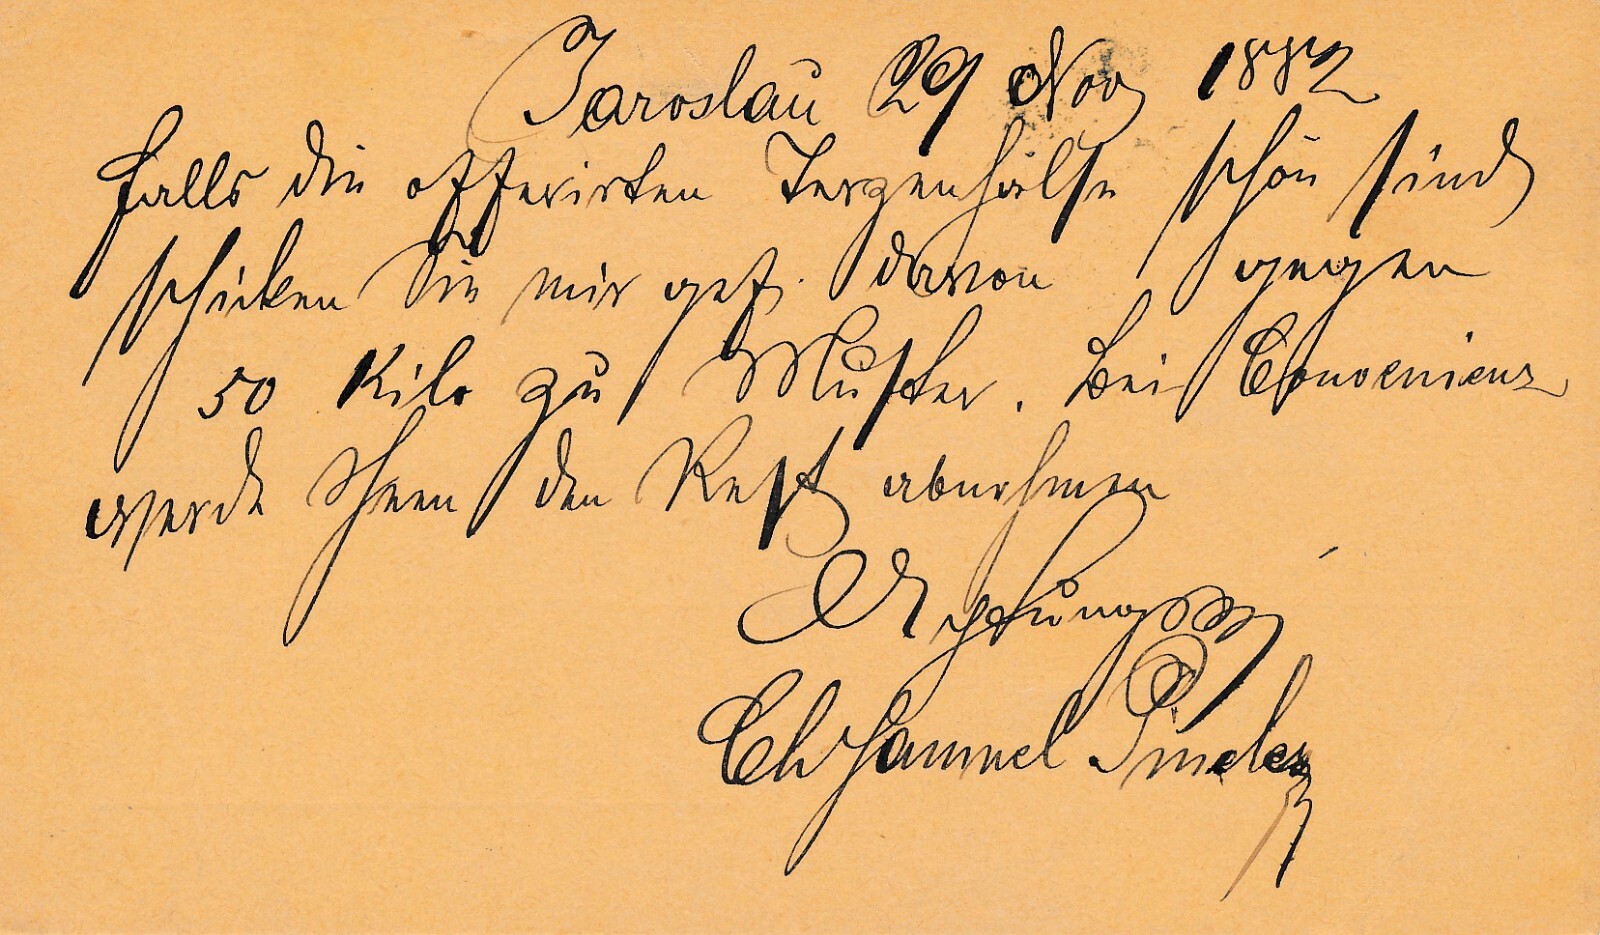 Jaroslau 29 Nov 1882
falls die offerirten schön sind
schicken Sie mir gef. davon gegen
50 Kilo zu Muster. Bei Convenienz
werde Ihnen den Rest abnehmen
Achtungsv
Ch Samuel